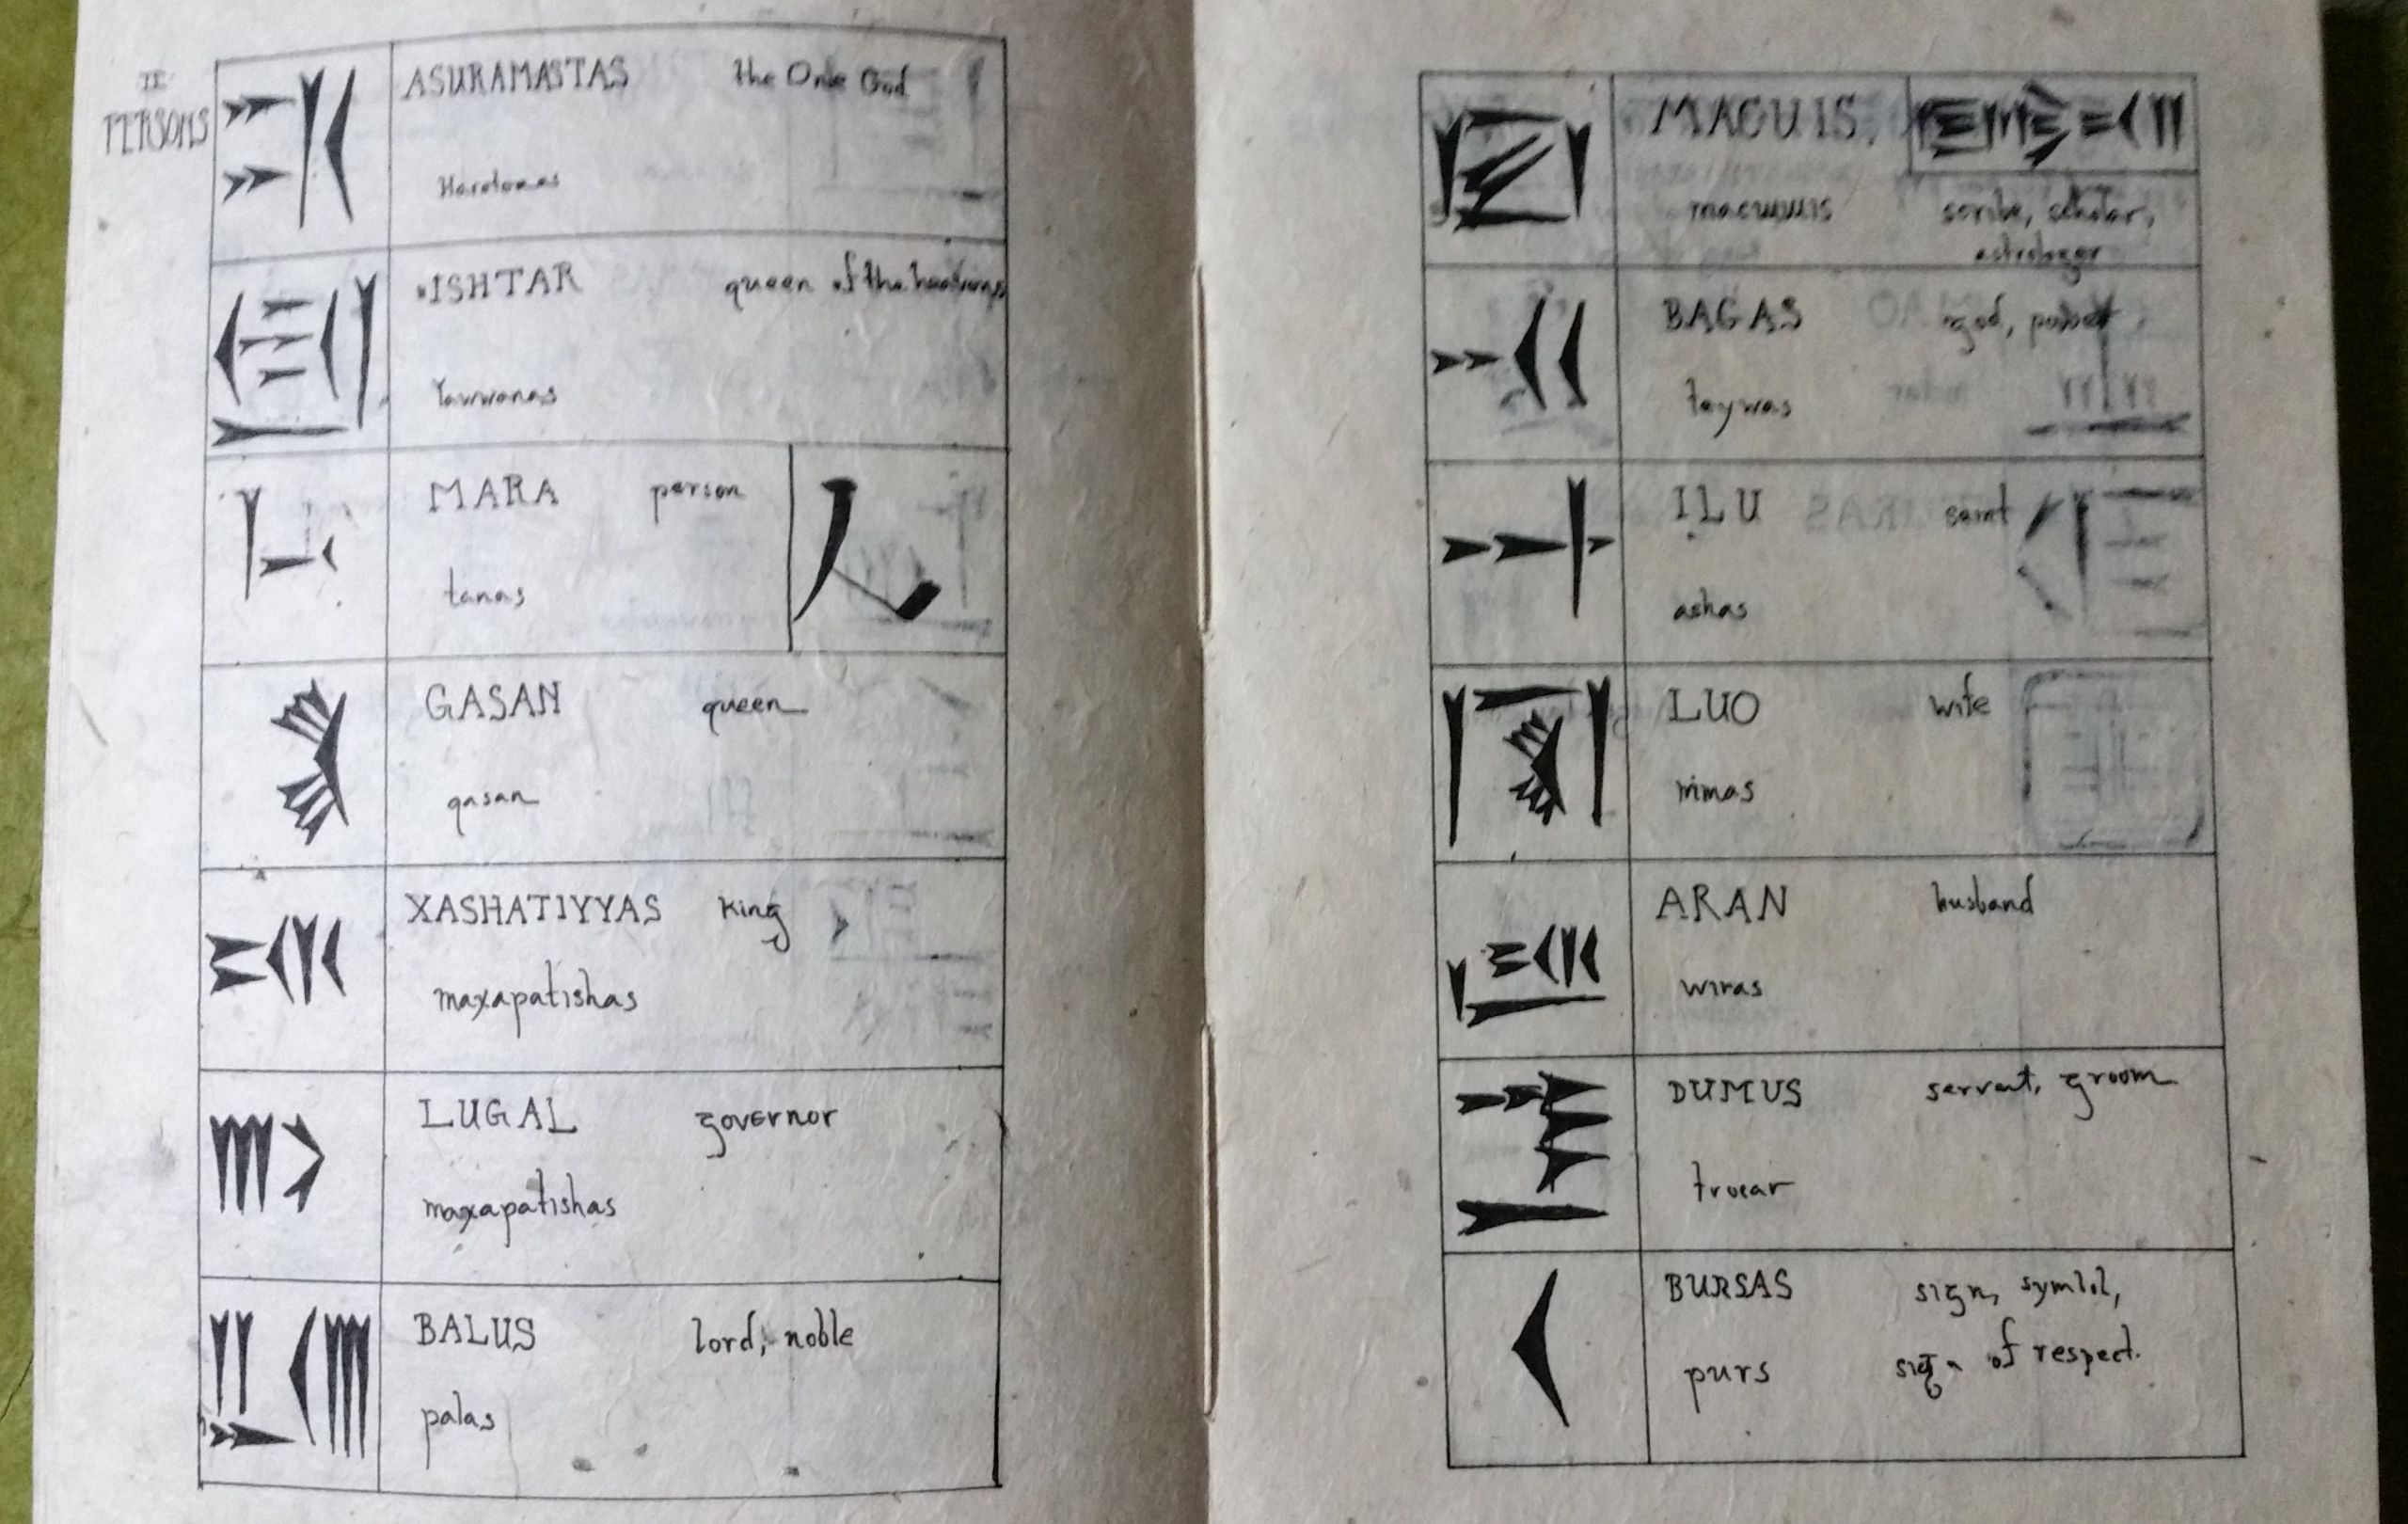 II
PERSONS
ASURAMASTAS the One God
ISHTAR queen of the heavens
Yawwanas
MARA person
人
tanas
GASAN queen
qasan
XASHATIYYAS King
maxapatishas
LUGAL governor
maxapatishas
BALUS lord, noble
palas
MAGUIS
scribe, scholar,
astrologer
BAGAS god, power
taywas
ILU saint
ashas
LUO wife
mimas
ARAN husband
wiras
DUMUS servant, groom
BURSAS sign, symbol,
purs sign of respect.